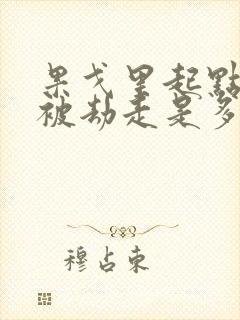 果戈里起點
被劫走是多
穆占東